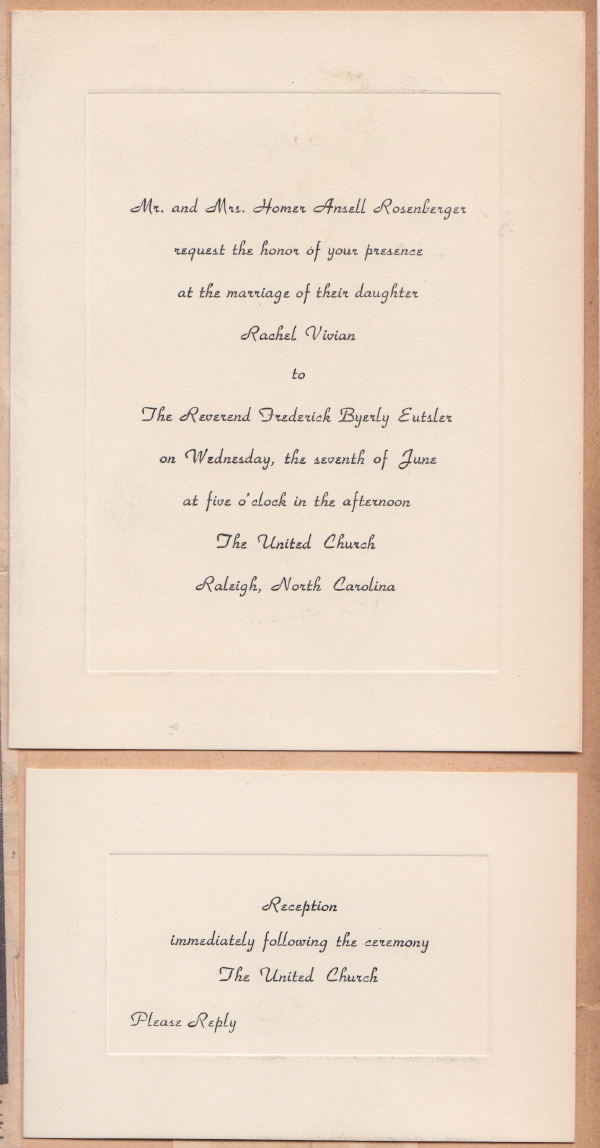 Mr. and Mrs. Homer Ansell Rosenberger
request the honor of your presence
at the marriage of their daughter
Rachel Vivian
to
The Reverend Frederick Byerly Eutsler
on Wednesday, the seventh of June
at five o'clock in the afternoon
The United Church
Raleigh, North Carolina
Reception
immediately following the ceremony
The United Church
Please Reply